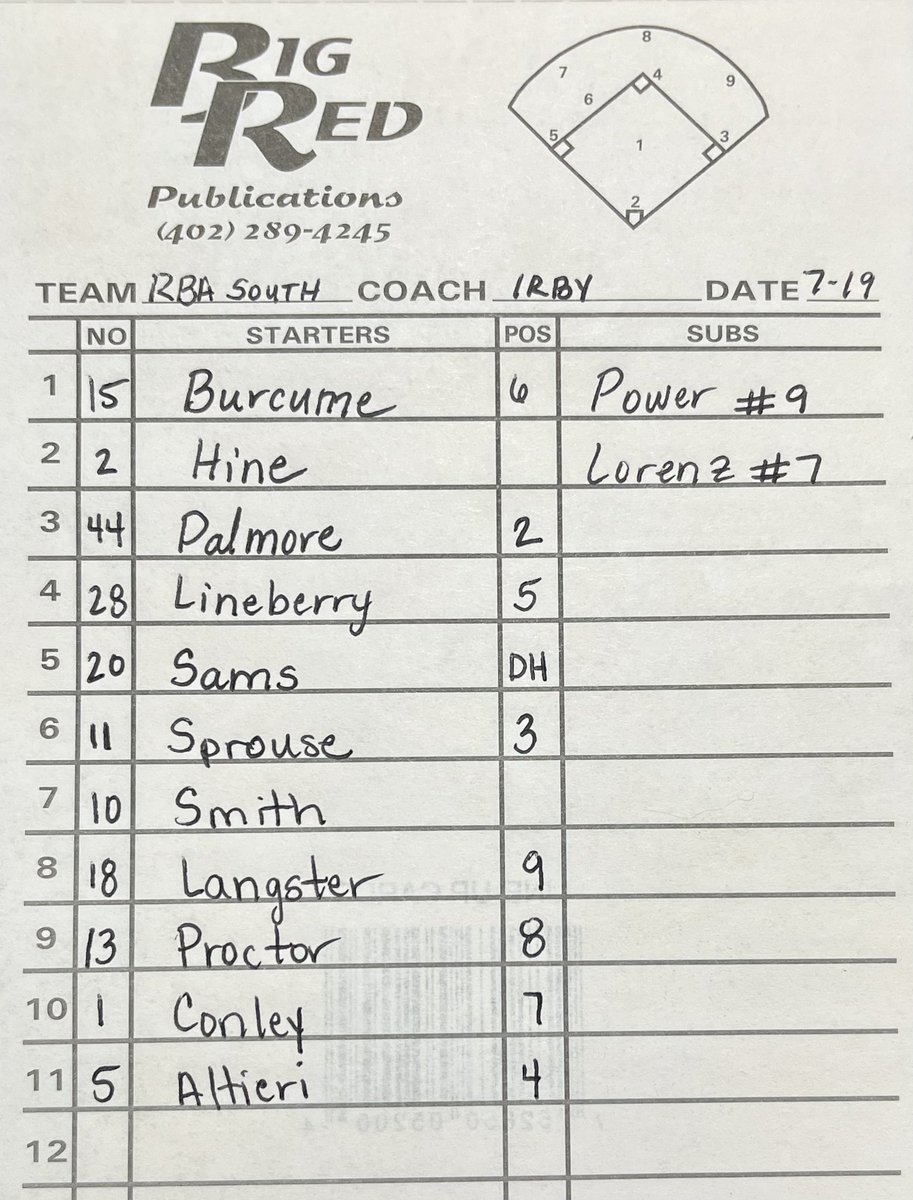 RIG
RED
Publications
(402) 289-4245
8
7 4 9
6
5 1 3
2
TEAM RBA SOUTH COACH IRBY DATE 7-19
NO STARTERS POS SUBS
1 15 Burcume 6 Power #9
2 2 Hine Lorenz #7
3 44 Palmore 2
4 28 Lineberry 5
5 20 Sams DH
6 11 Sprouse 3
7 10 Smith
8 18 Langster 9
9 13 Proctor 8
10 1 Conley 7
11 5 Altieri 4
12